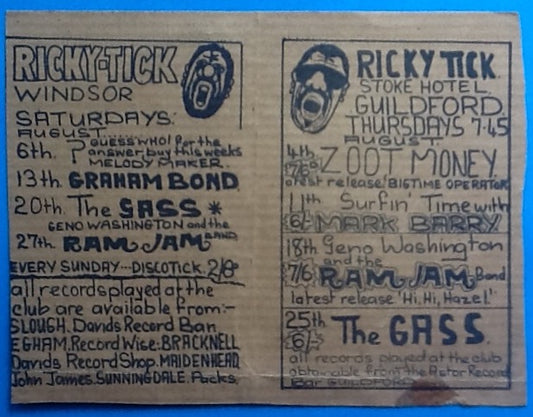 RICKY-TICK
WINDSOR
SATURDAYS:
AUGUST.....
6th. ? GUESS WHO! for the
answer, buy this weeks
MELODY MAKER.
13th. GRAHAM BOND
20th. The GASS *
GENO WASHINGTON and the
27th. RAM JAM BAND
EVERY SUNDAY...DISCOTICK. 2/8
all records played at the
club are available from:-
SLOUGH. Davids Record Bar.
EGHAM, Record Wise. BRACKNELL
Davids Record Shop. MAIDENHEAD
John James. SUNNINGDALE.
RICKY TICK
STOKE HOTEL.
GUILDFORD
THURSDAYS 7.45
AUGUST.
4th ZOOT MONEY
7/6
latest release 'BIG TIME OPERATOR'
11th Surfin' Time with
6/- MARK BARRY
18th. Geno Washington
and the
7/6 RAM JAM Band
latest release 'Hi, Hi, Hazel'
25th The GASS.
6/-
all records played at the club
obtainable from the Astor Record
Bar GUILDFORD